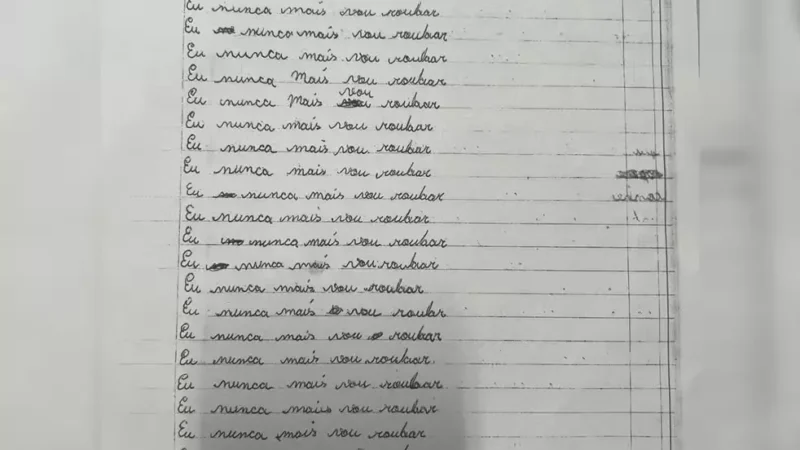 Eu nunca mais vou roubar
Eu nunca mais vou roubar
Eu nunca mais vou roubar
Eu nunca Mais vou roubar
Eu nunca Mais vou roubar
Eu nunca mais vou roubar
Eu nunca mais vou roubar
Eu nunca mais vou roubar
Eu nunca mais vou roubar
Eu nunca mais vou roubar
Eu nunca mais vou roubar
Eu nunca mais vou roubar
Eu nunca mais vou roubar
Eu nunca mais vou roubar
Eu nunca mais vou roubar
Eu nunca mais vou roubar
Eu nunca mais vou roubar
Eu nunca mais vou roubar
Eu nunca mais vou roubar